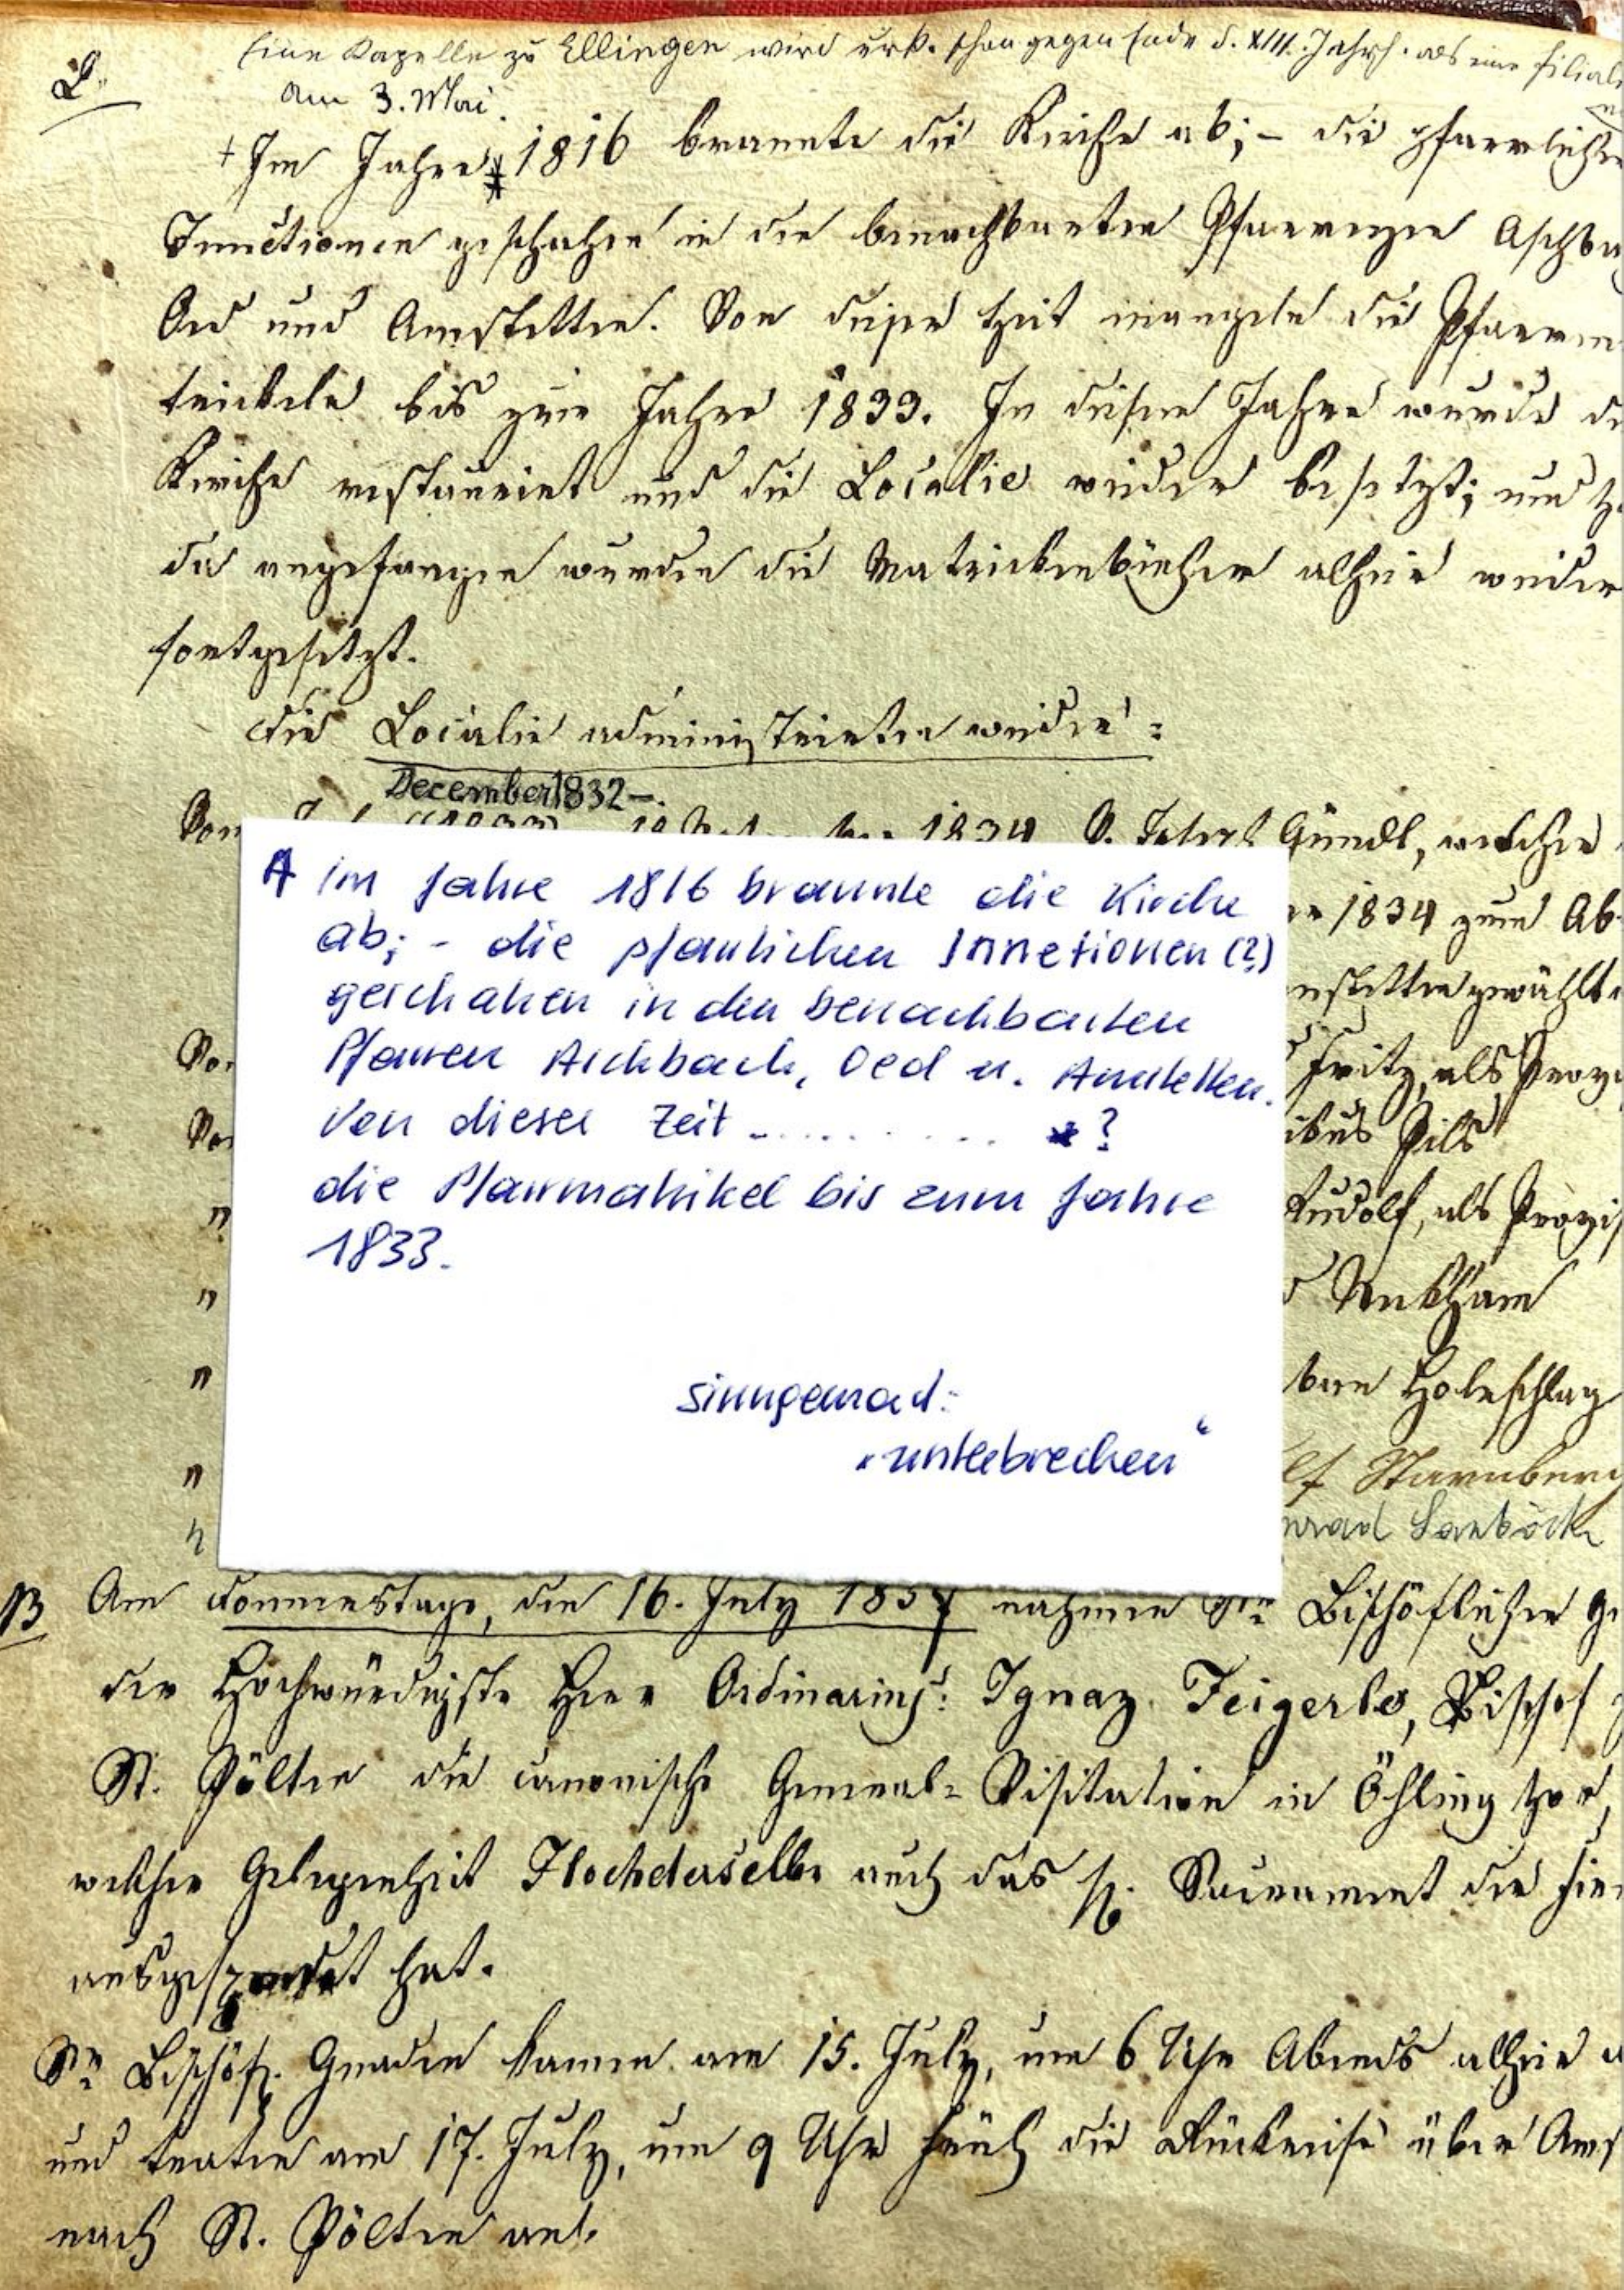 Eine Kapelle zu Ellingen wird urk. schon gegen Ende d. XIII. Jahrh. als eine Filiale
L.
am 3. Mai.
+ Im Jahre 1816 brannte die Kirche ab; – die pfarrlichen
Functionen geschahen in den benachbarten Pfarreyen Aschba
Oed und Amstetten. Von dieser Zeit mangeln die Pfarrm
trickeln bis zum Jahre 1833. In diesem Jahre wurde d
Kirche restaurirt und die Localie wieder besetzt; und
da angefangen wurden die Matrickenbücher allhier wieder
fortgesetzt.
Die Localie administrirten wieder:
December 1832 –.
Vom 1834 Gündl, welcher
1834 zum Ab
nstetten gewählt
Von Fritz, als Provi
Von ibus Pils
" Rudolf, als Provis
"
" Holzschlag
" lf Starnberg
" nrad
A im Jahre 1816 brannte die Kirche
ab; - die pfarrlichen Innetionen (?)
geschahen in den benachbarten
Pfarren Aschbach, Oed u. Amstetten.
Von dieser Zeit ........... * ?
die Pfarrmatrikel bis zum Jahre
1833.
sinngemäß:
„unterbrechen“
B Am Donnerstage, den 16. July 1857 nahmen Se Bischöflichen G
der Hochwürdigste Herr Ordinarius: Ignaz Feigerle, Bischof z
St. Pölten die canonische General-Visitation in Öhling vor,
welcher Gelegenheit Hochderselbe auch das hl. Sacrament der Fir
ausgespendet hat.
Se Bischöfl. Gnaden kamen am 15. July, um 6 Uhr Abends allhier a
und traten am 17. July, um 9 Uhr Früh die Rückreise über Ams
nach St. Pölten an.